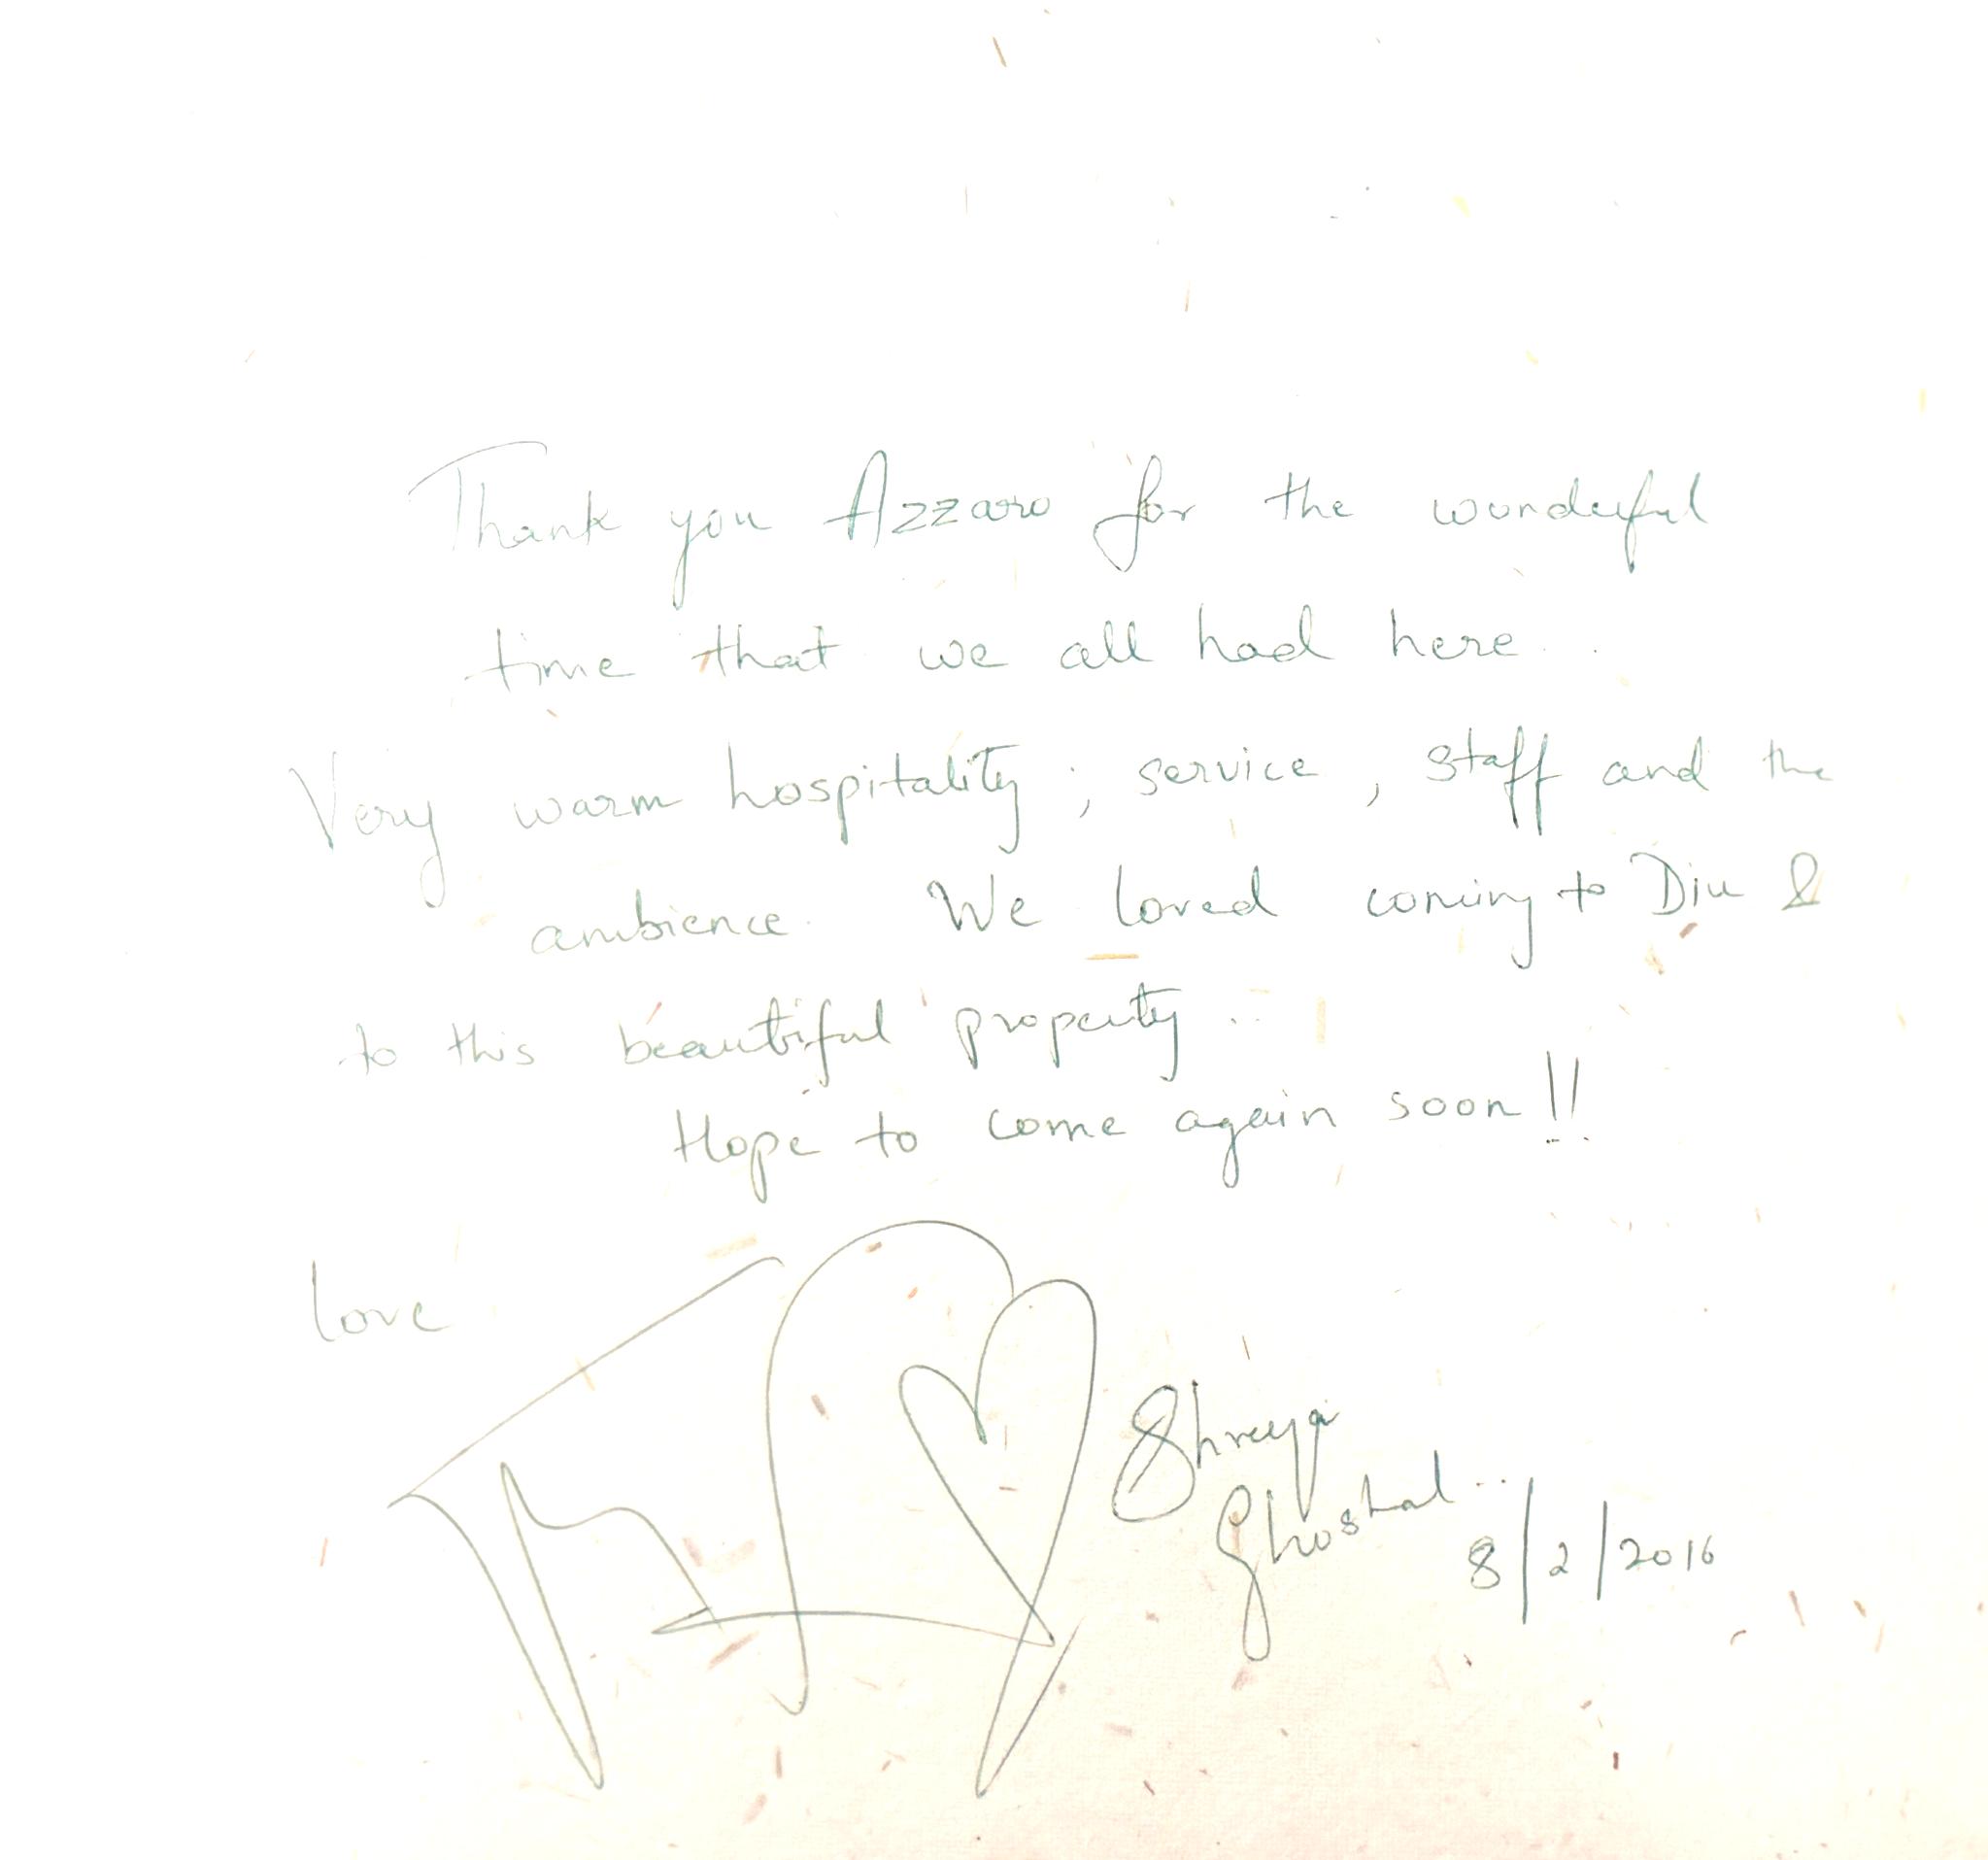 Thank you Azzaro for the wonderful
time that we all had here..
Very warm hospitality, service, staff and the
ambience. We loved coming to Diu &
to this beautiful property...
Hope to come again soon!!
Love
Shreya
Ghoshal...
8/2/2016